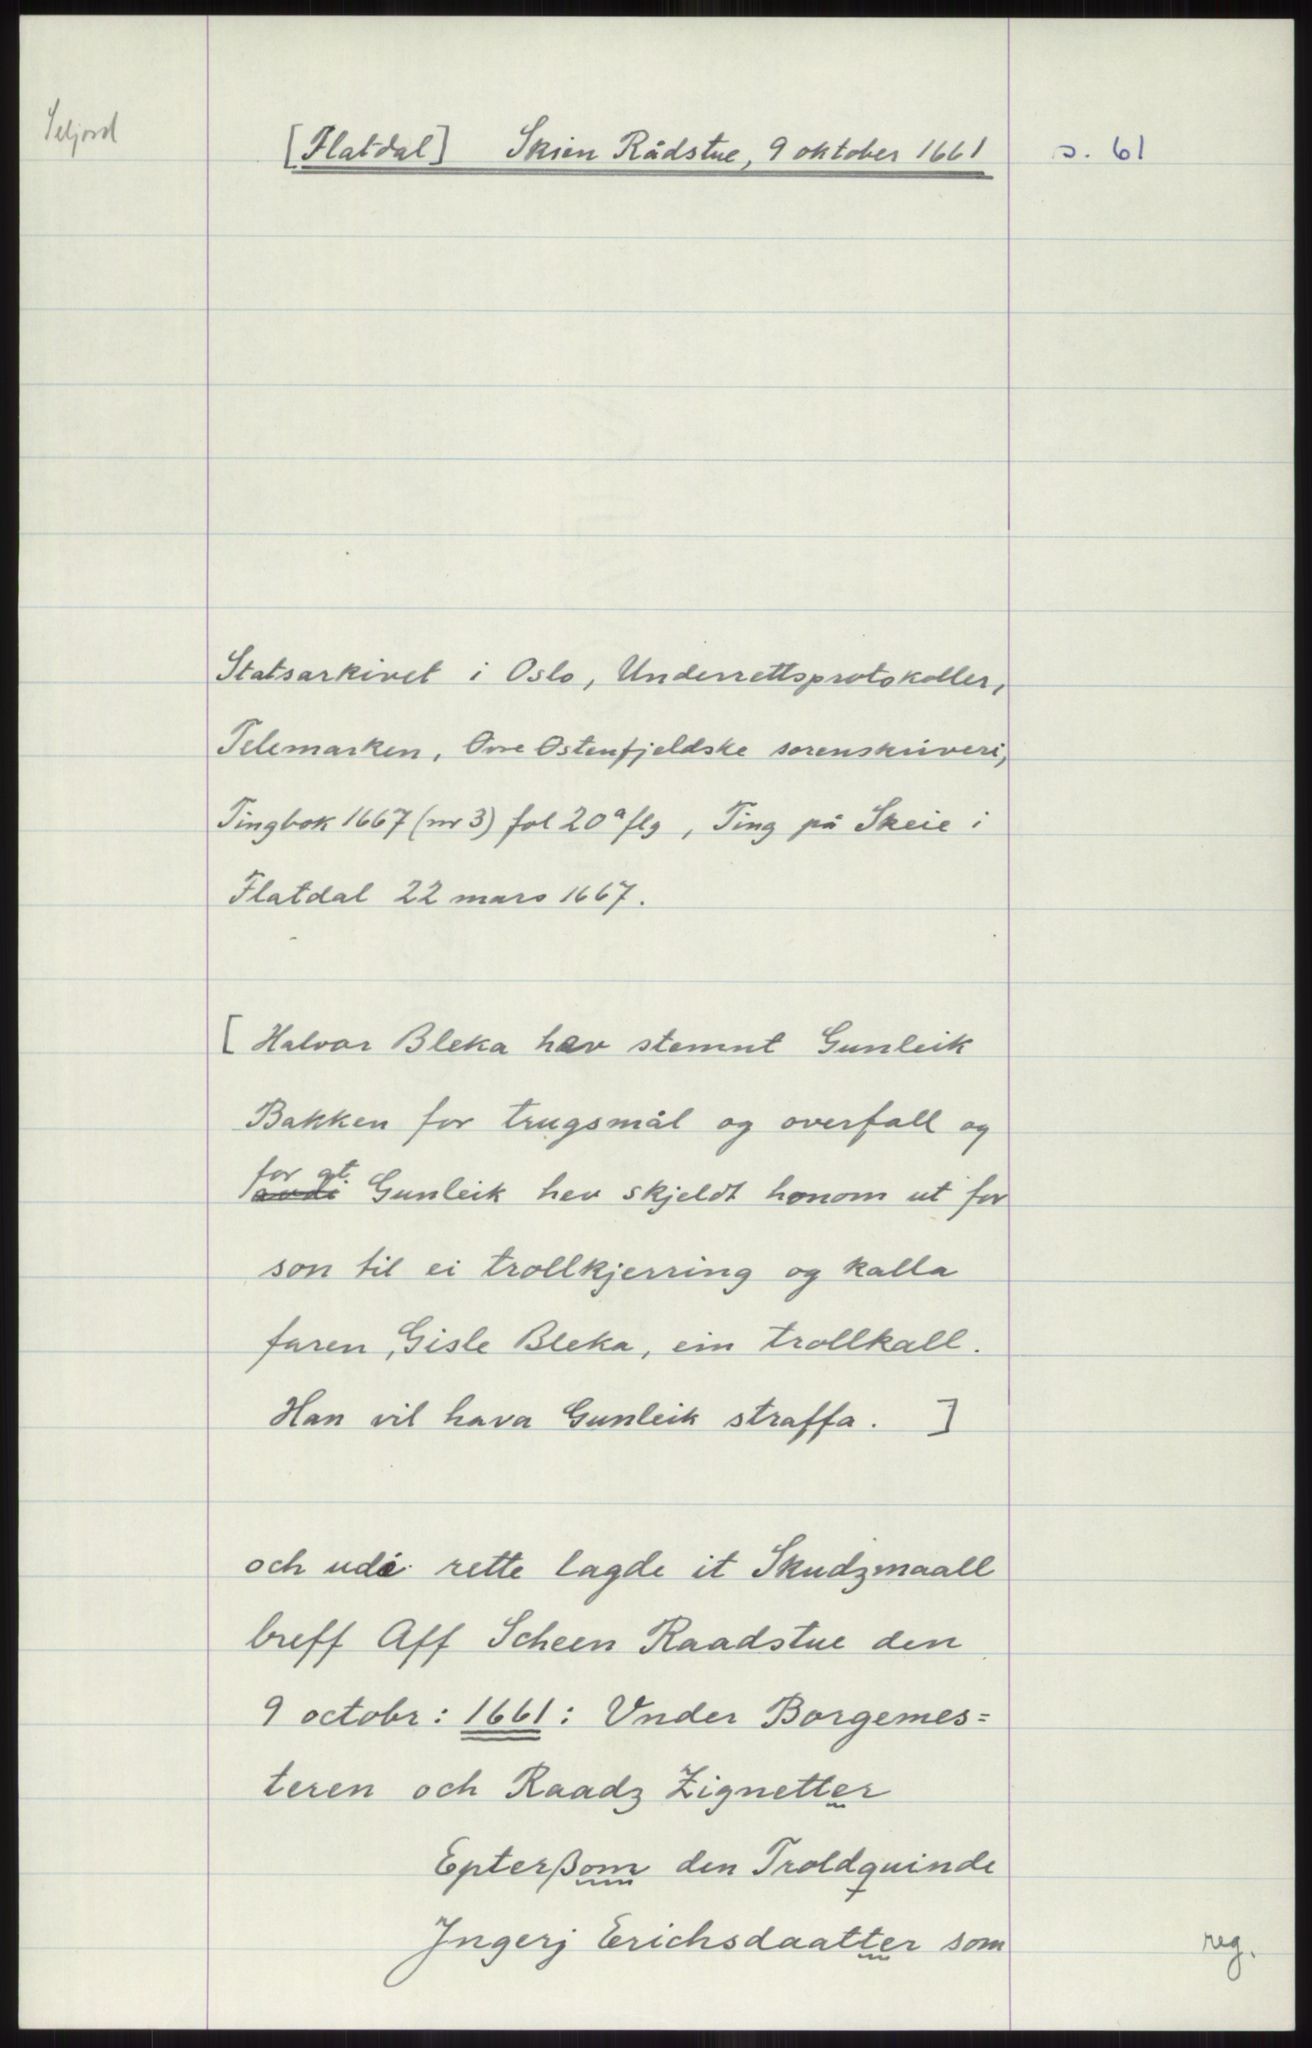 Seljord
[Flatdal] Skien Rådstue, 9 oktober 1661 s. 61
Statsarkivet i Oslo, Underrettsprotokoller,
Telemarken, Øvre Østenfjeldske sorenskriveri,
Tingbok 1667 (nr 3) fol 20ª flg, Ting på Skeie i
Flatdal 22 mars 1667.
[ Halvor Bleka hev stemnt Gunleik
Bakken for trugsmål og overfall og
for at Gunleik hev skjeldt honom ut for
son til ei trollkjerring og kalla
faren, Gisle Bleka, ein trollkall.
Han vil hava Gunleik straffa. ]
och udi rette lagde it Skudzmaall
breff Aff Scheen Raadstue den
9 octobr: 1661: Vnder Borgemes=
teren och Raadz Zignetter
Epterßom den Troldquinde
Jngerj Erichsdaatter som
reg.